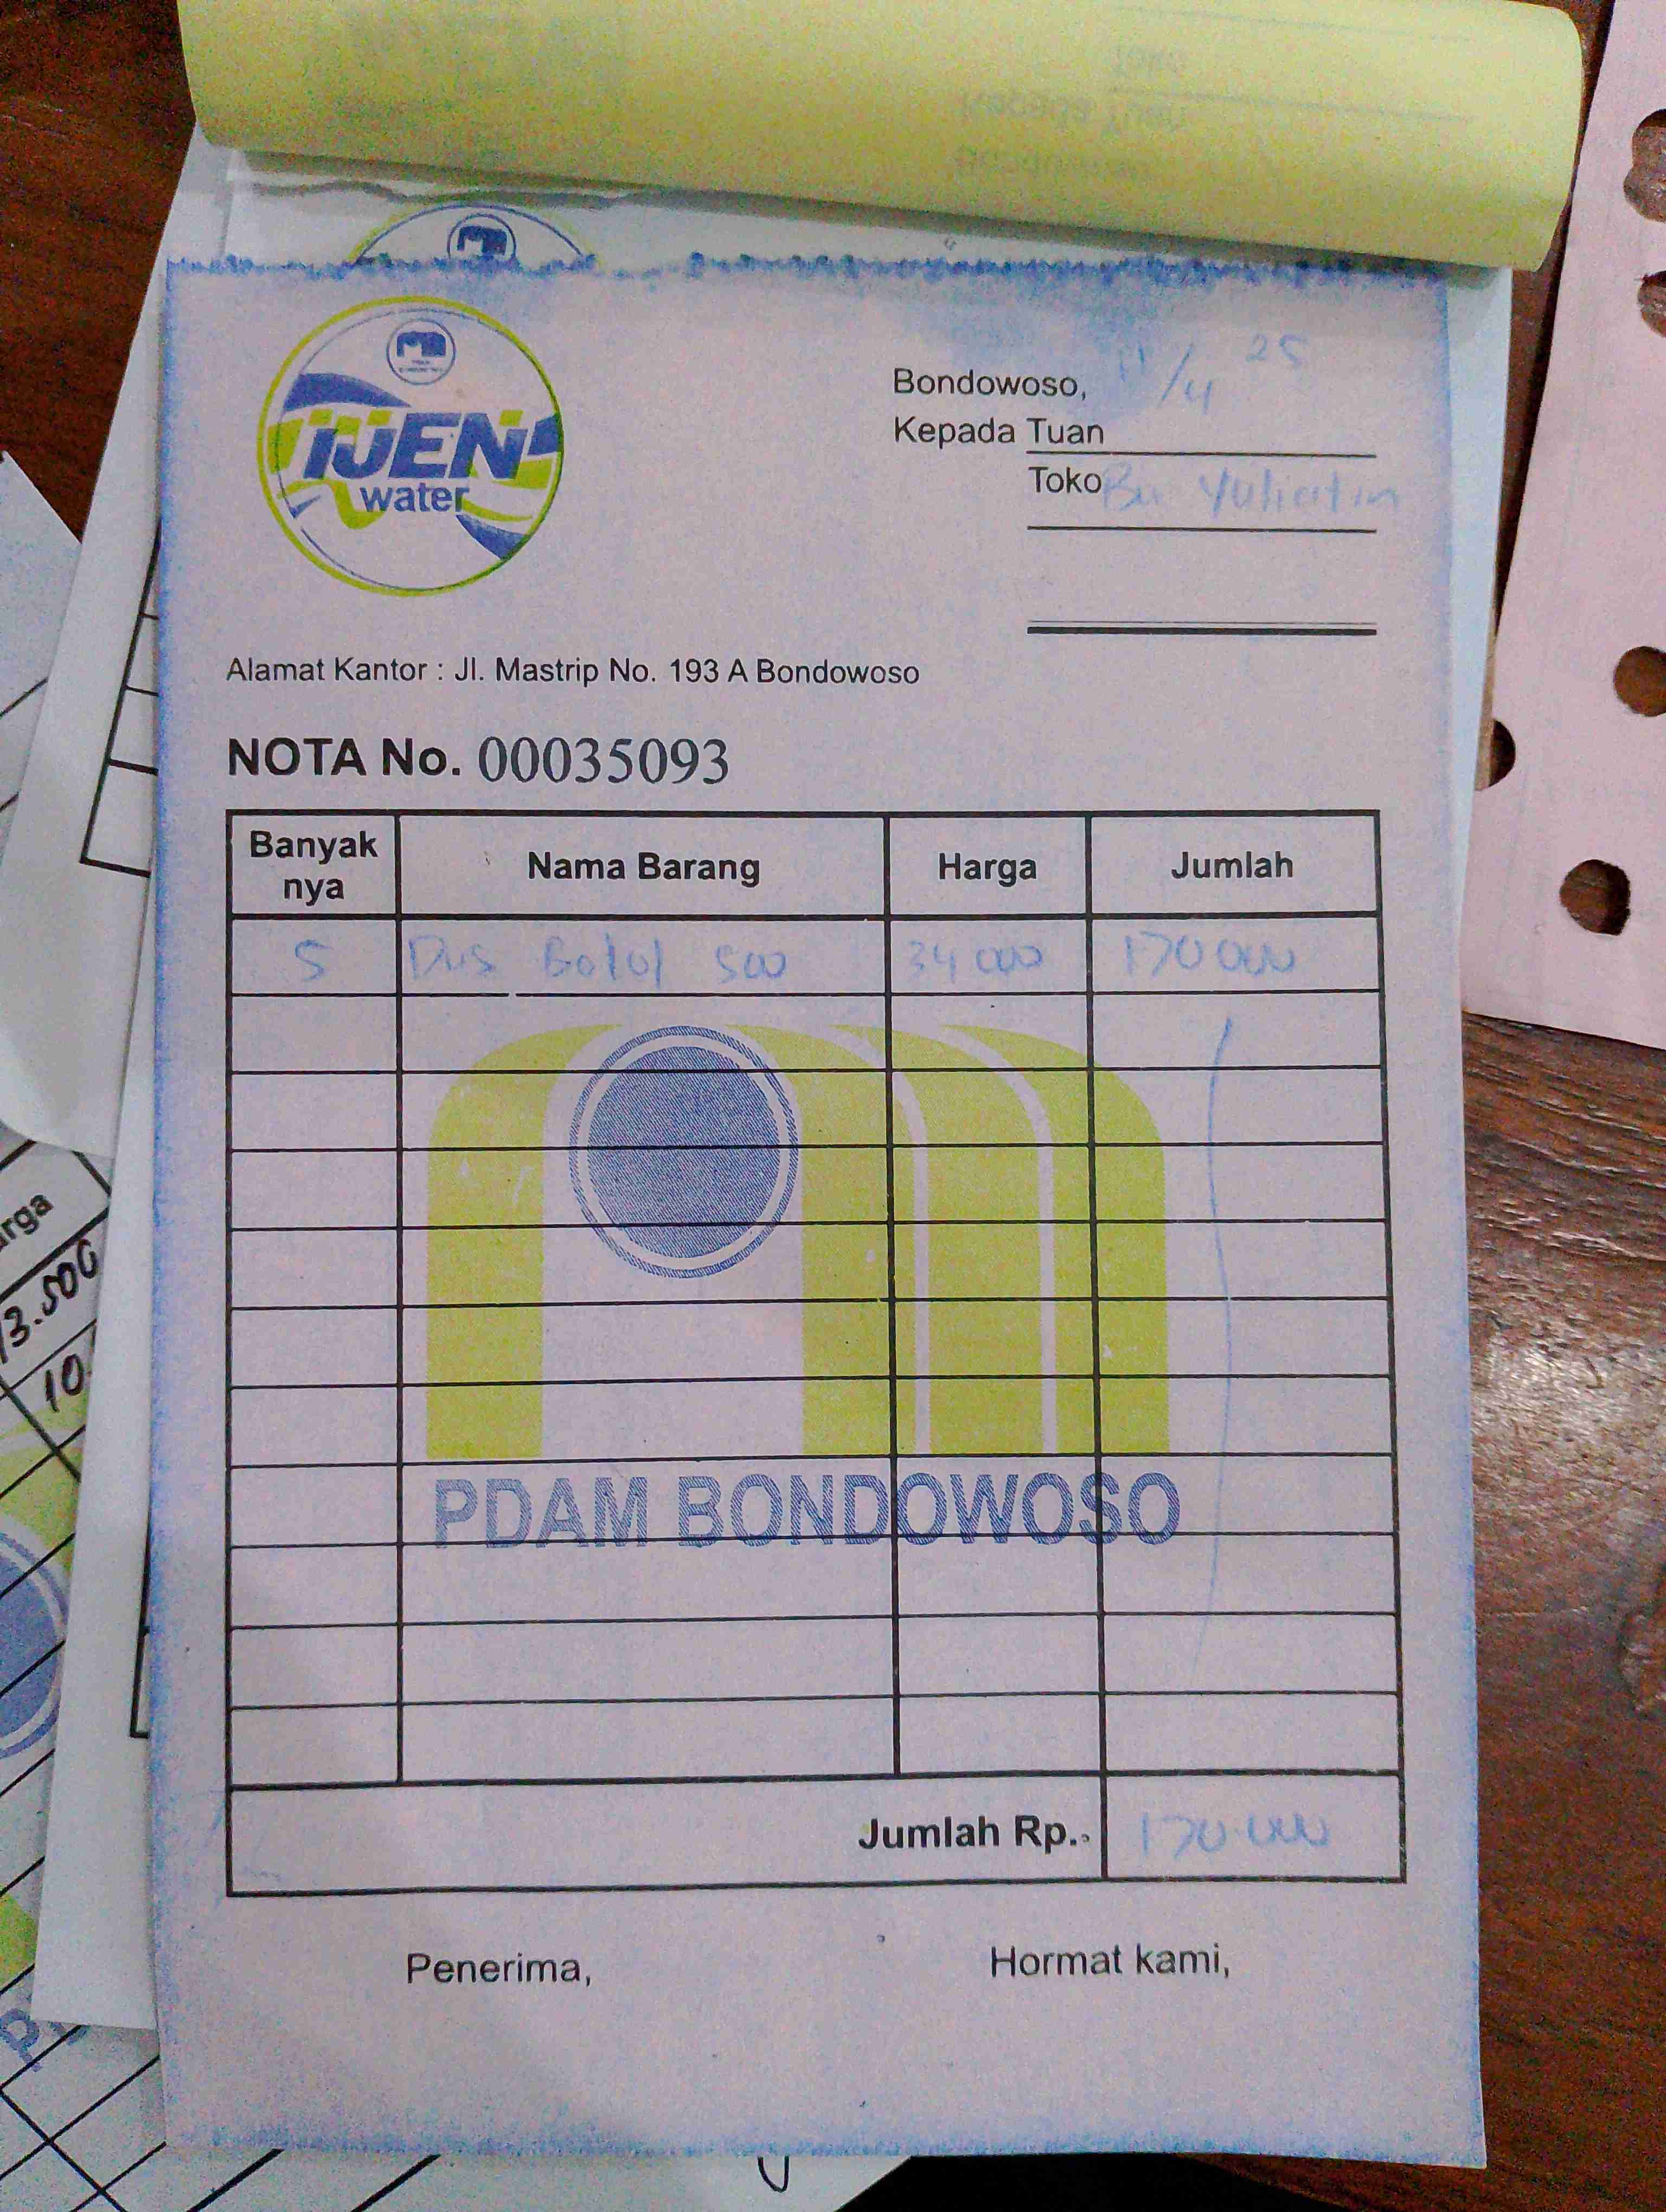 IJEN
water
Bondowoso, 11/4 25
Kepada Tuan
Toko Bu Yuliatin
Alamat Kantor : Jl. Mastrip No. 193 A Bondowoso
NOTA No. 00035093
Banyak nya Nama Barang Harga Jumlah
5 Dus Botol 500 34 000 170 000
PDAM BONDOWOSO
Jumlah Rp. 170.000
Penerima, Hormat kami,
rga
13.500
10